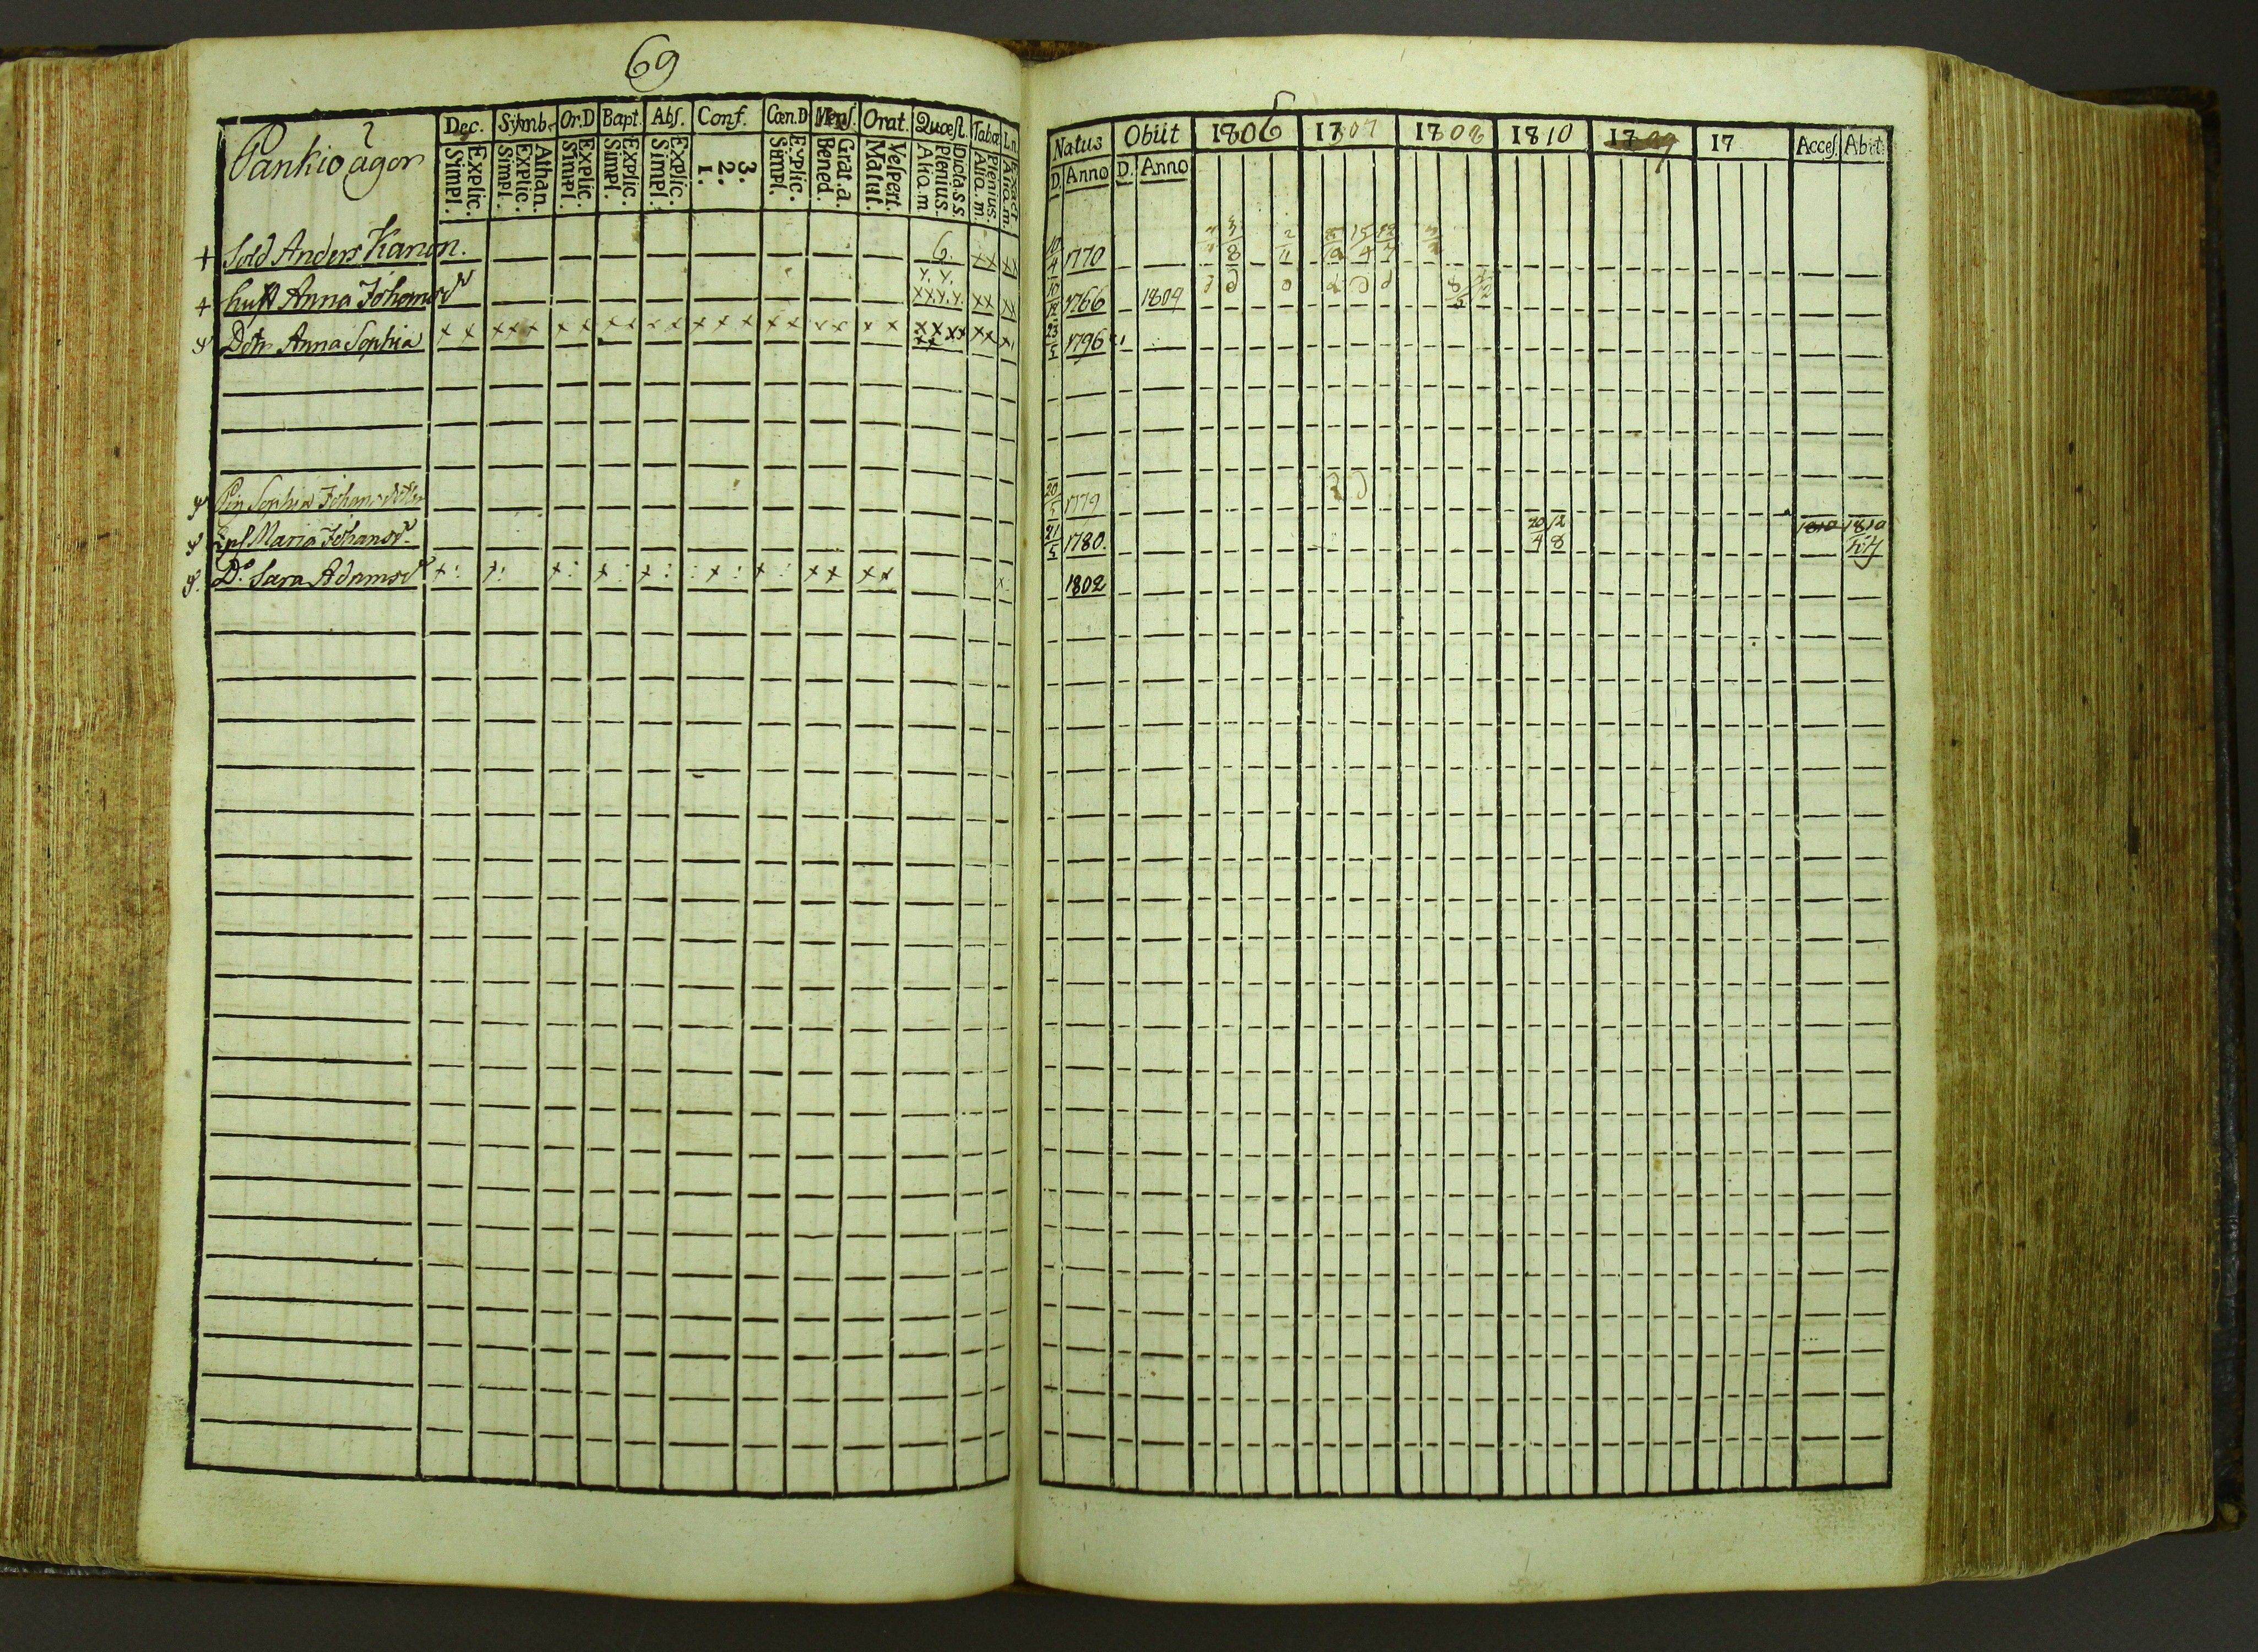 69
Pankio ägor
Dec. Symb. Or.D Bapt. Abs. Conf. Cœn.D Mens. Orat. Quæst. Tabæ
Simpl. Explic. Simpl. Explic. Athan. Simpl. Explic. Simpl. Explic. Simpl. Explic. 1. 2. 3. Simpl. Explic. Bened. Grat. a. Matut. Vespert. Alia. m Plenius. Dicta.s.s. Alia. m. Plenius.
Natus Obiit 1806 1807 1808 1810 1809 17 Acces. Abit.
D. Anno D. Anno
+ Sold Anders Kanon. 6. xx xx 10/4 1770
+ hust Anna Johansdr 10/12 1766 1809
Dotr Anna Sophia x x x x x x x x x x x x x x x x x x x 23/5 1796
Pig Sophia Johansdotter 20/5 1779
Maria Johansdr 21/5 1780. 20/4 12/8 1810 1810
Do Sara Adamsdr x: x: x: x: x: :x: x: x x x x x 1802